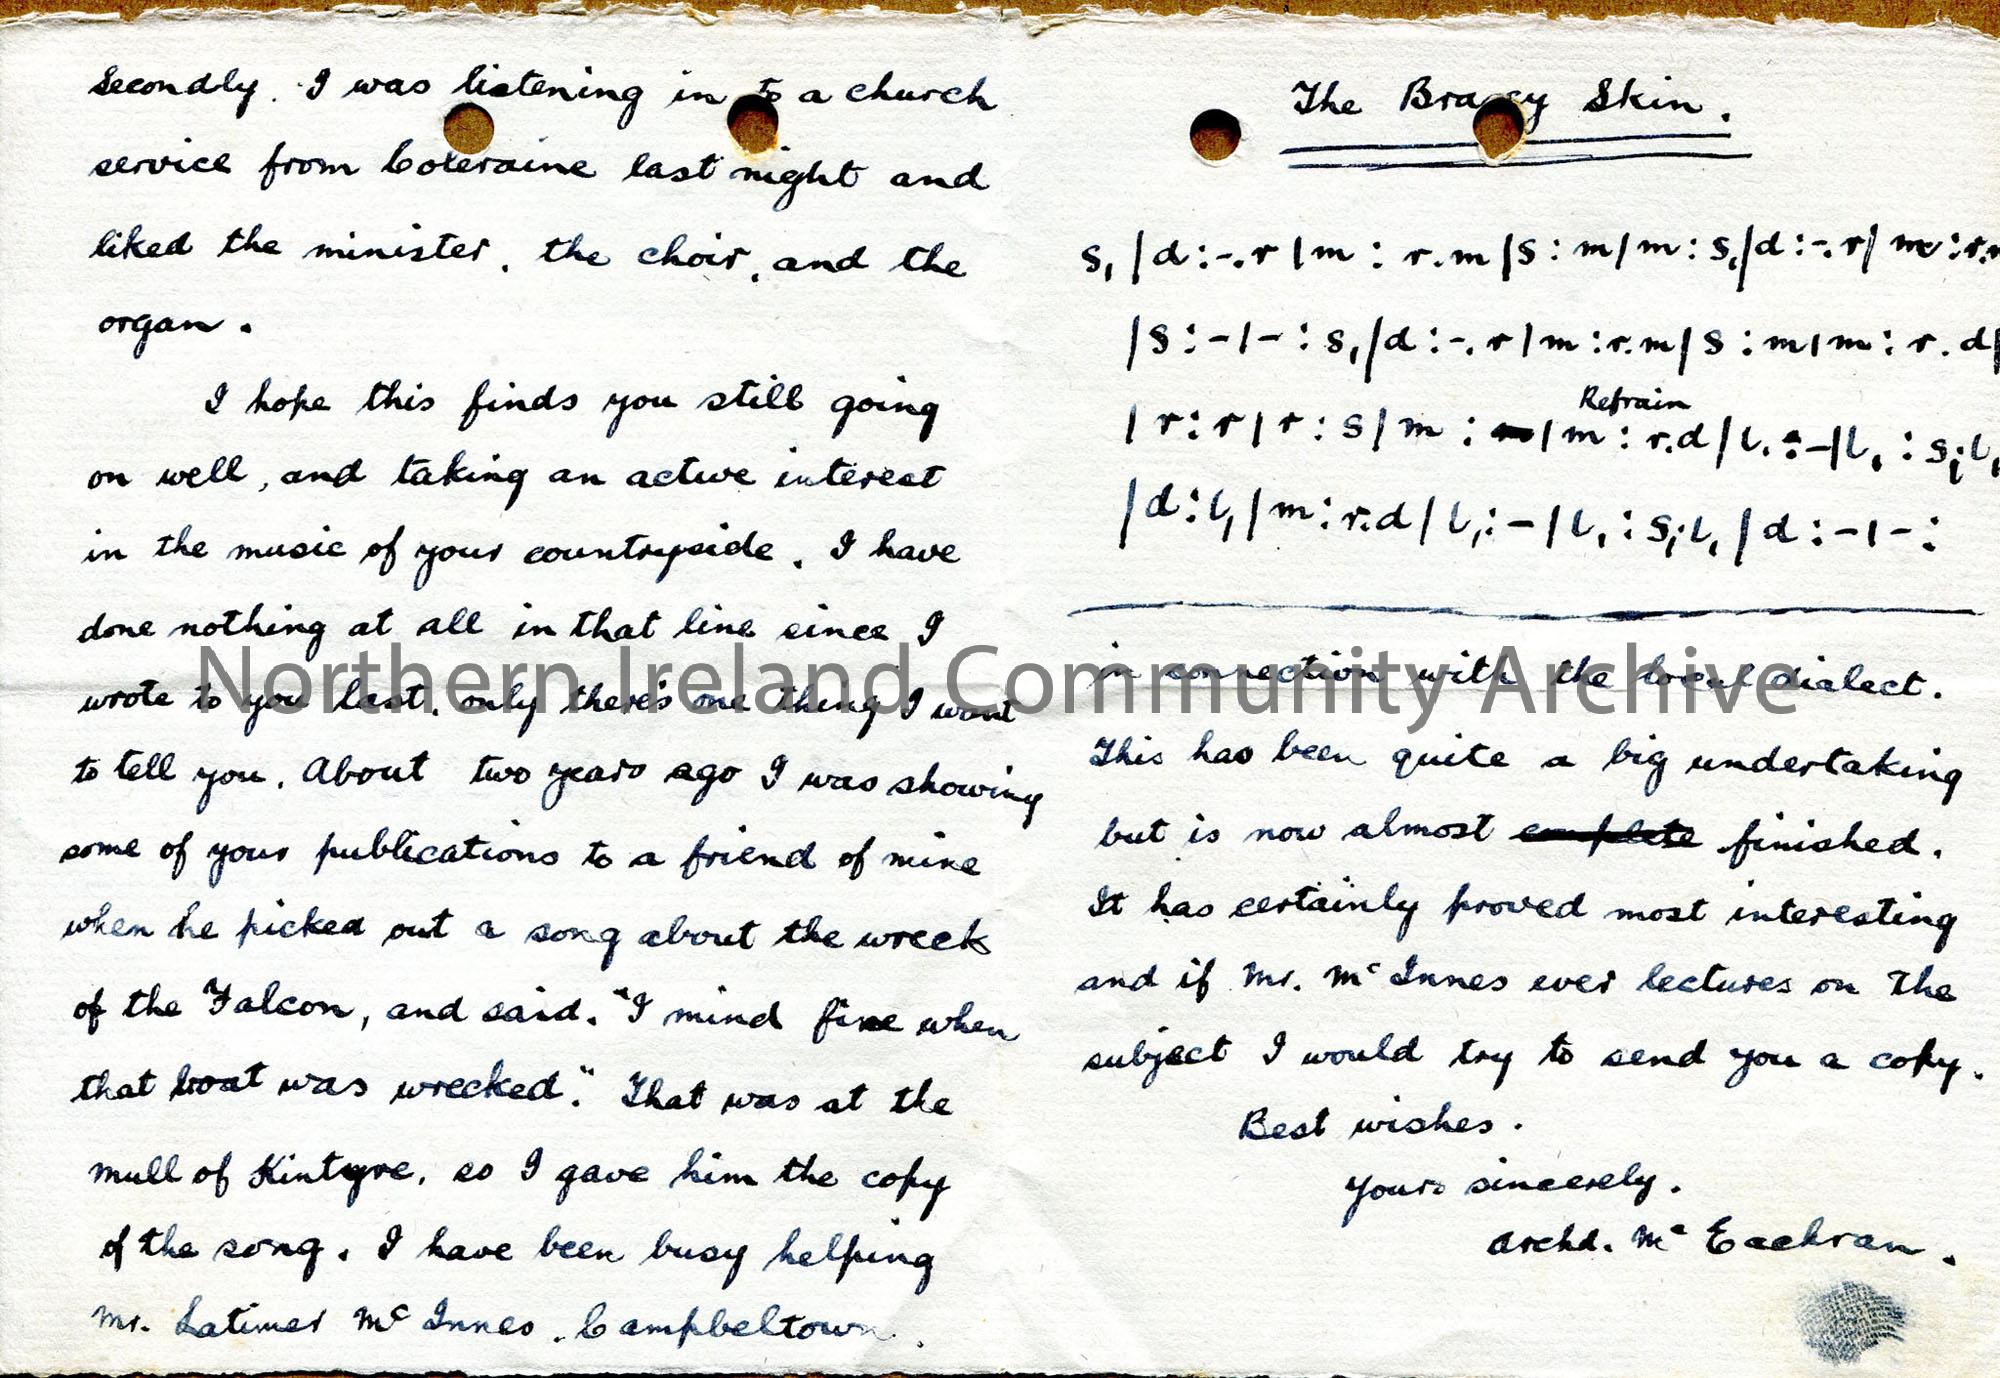 Secondly. I was listening in to a church
service from Coleraine last night and
liked the minister, the choir, and the
organ.
I hope this finds you still going
on well, and taking an active interest
in the music of your countryside. I have
done nothing at all in that line since I
wrote to you last, only there's one thing I want
to tell you. About two years ago I was showing
some of your publications to a friend of mine
when he picked out a song about the wreck
of the Falcon, and said. "I mind fine when
that boat was wrecked." That was at the
Mull of Kintyre, so I gave him the copy
of the song. I have been busy helping
Mr. Latimer McInnes, Campbeltown.
The Skin.
s, | d :-. r | m : r.m | s : m | m : s, | d :-. r | m : r.m
| s : - | - : s, | d :-. r | m : r.m | s : m | m : r. d |
Refrain
| r : r | r : s | m : | m : r.d | l, : - | l, : s,. l,
| d : l, | m : r.d | l, : - | l, : s,. l, | d : - | - :
in connection with the local dialect.
This has been quite a big undertaking
but is now almost complete finished.
It has certainly proved most interesting
and if Mr. McInnes ever lectures on the
subject I would try to send you a copy.
Best wishes.
Yours sincerely.
Archd. McEachran.
Northern Ireland Community Archive